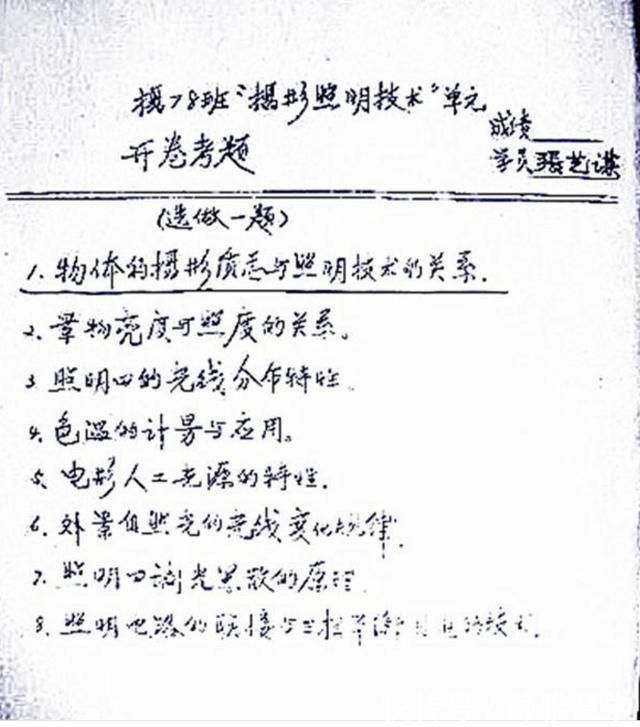 摄78班“摄影照明技术”单元
成绩
开卷考题
学员 张艺谋
(选做一题)
1. 物体的摄影质态与照明技术的关系.
2. 景物亮度与照度的关系。
3. 照明灯的光线分布特性.
4. 色温的计算与应用。
5. 电影人工光源的特性.
6. 外景自然光的光线变化规律.
7. 照明 调光 的原理.
8. 照明电路的联接与三相 技术.